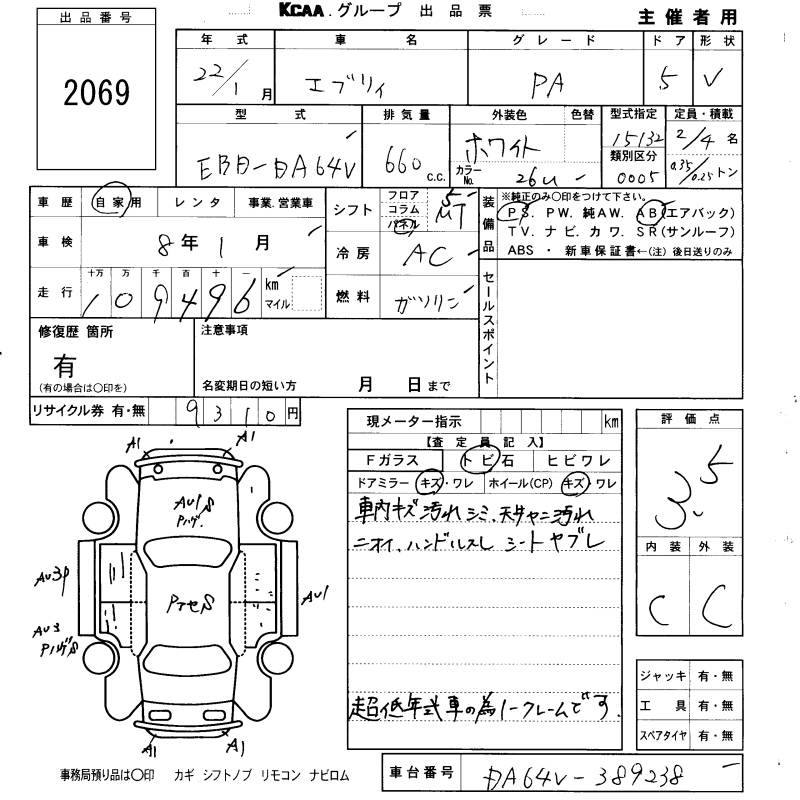 KCAA.グループ 出品票
主催者用
出品番号
2069
年式 車名 グレード ドア 形状
22/1月 エブリィ PA 5 V
型式 排気量 外装色 色替 型式指定 定員・積載
EBD-DA64V 660c.c. ホワイト 15132 2/4名
カラーNo. 26U 類別区分 0005 0.35/0.25トン
車歴 自家用 レンタ 事業.営業車
車検 8年1月
走行 十万 万 千 百 十 一
109496 km マイル
シフト フロア コラム パネル 5 MT
冷房 AC
燃料 ガソリン
装備品 ※純正のみ〇印をつけて下さい。
PS. PW. 純AW. AB(エアバック)
TV. ナビ. カワ. SR(サンルーフ)
ABS ・ 新車保証書←(注) 後日送りのみ
セールスポイント
修復歴 箇所
有
(有の場合は〇印を)
注意事項
名変期日の短い方 月 日まで
リサイクル券 有・無 9310円
現メーター指示 km
【査定員記入】
Fガラス トビ石 ヒビワレ
ドアミラー キズ・ワレ ホイール(CP) キズ・ワレ
車内キズ 汚れ シミ、天井ヤニ汚れ
ニオイ、ハンドルスレ シートヤブレ
超低年式車の為ノークレームです.
評価点
3.5
内装 外装
C C
ジャッキ 有・無
工具 有・無
スペアタイヤ 有・無
A1 A1
AU1S
Pハゲ.
AU3P
PアセS
AU1
AU3
PハゲS
A1 A1
事務局預り品は〇印 カギ シフトノブ リモコン ナビロム
車台番号 DA64V-389238